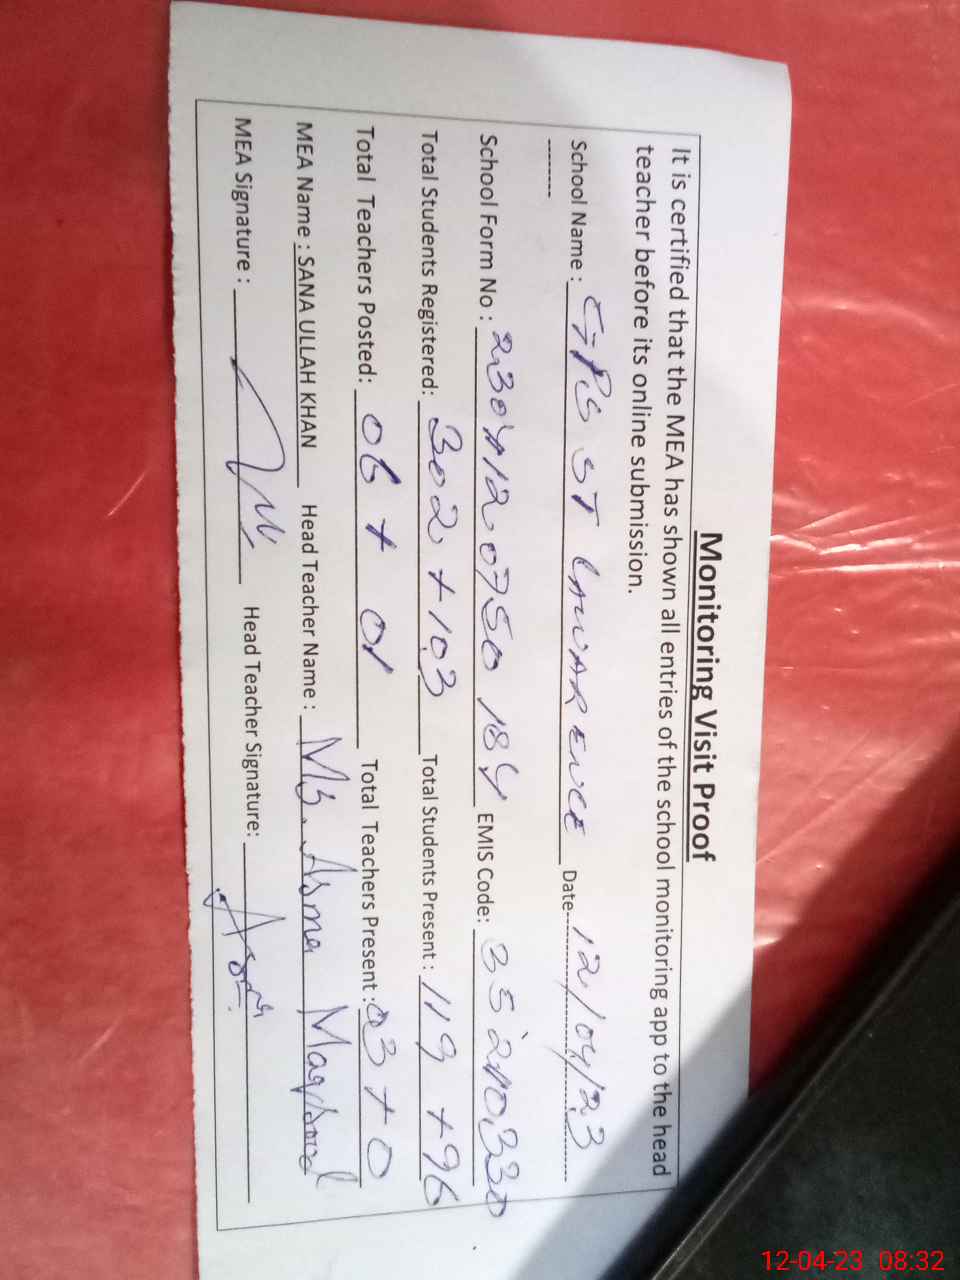 Monitoring Visit Proof
It is certified that the MEA has shown all entries of the school monitoring app to the head
teacher before its online submission.
School Name : GPS ST LAWARENCE Date 12/04/23
School Form No : 2304120750184 EMIS Code: 35210330
Total Students Registered: 302 + 103 Total Students Present : 119 + 96
Total Teachers Posted: 06 + 01 Total Teachers Present : 03 + 0
MEA Name : SANA ULLAH KHAN Head Teacher Name : Ms. Asma Maqsood
MEA Signature : Head Teacher Signature:
12-04-23 08:32